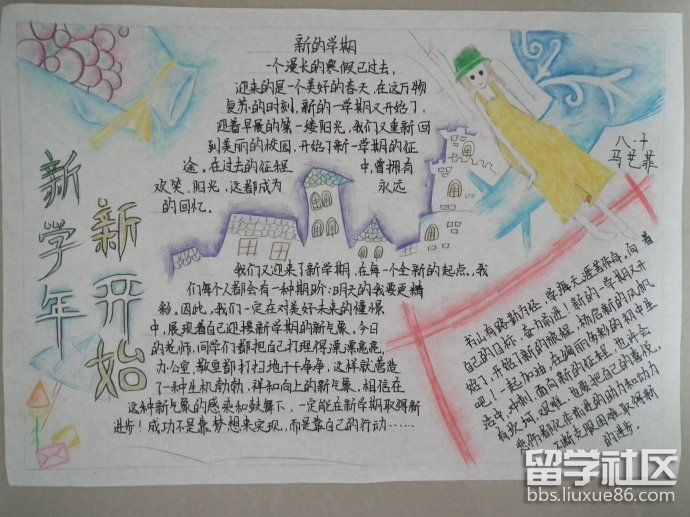 新的学期
一个漫长的寒假已过去,
迎来的是一个美好的春天,在这万物
复苏的时刻,新的一学期又开始了,
迎着早晨的第一缕阳光,我们又重新回
到美丽的校园,开始了新一学期的征
途。在过去的征程中,曾拥有
欢笑、阳光,这都成为永远
的回忆。
八·十
马艺菲
新学年
新开始
我们又迎来了新学期,在每一个全新的起点,我
们每个人都会有一种期盼:明天的我要更精
彩。因此,我们一定在对美好未来的憧憬
中,展现着自己迎接新学期的新气象。今日
的老师,同学们都把自己打理得漂漂亮亮,
办公室、教室都打扫地干干净净,这样就营造
了一种生机勃勃,祥和向上的新气象。相信在
这种新气象的感染和鼓舞下,一定能在新学期取得新
进步!成功不是靠梦想来实现,而是靠自己的行动……
书山有路勤为径,学海无涯苦作舟,向着
自己的目标,奋力前进!新的一学期又开
始了,开始了新的旅程,扬起新的风帆
吧!一起加油,在绚丽多彩的初中生
活中,冲刺,面向新的征程,也许会
有坎坷、艰难,也要把自己的喜悦,
悲伤都化作前进的动力和动力
不断克服困难,取得新
的进步。
留学社区
bbs.liuxue86.com